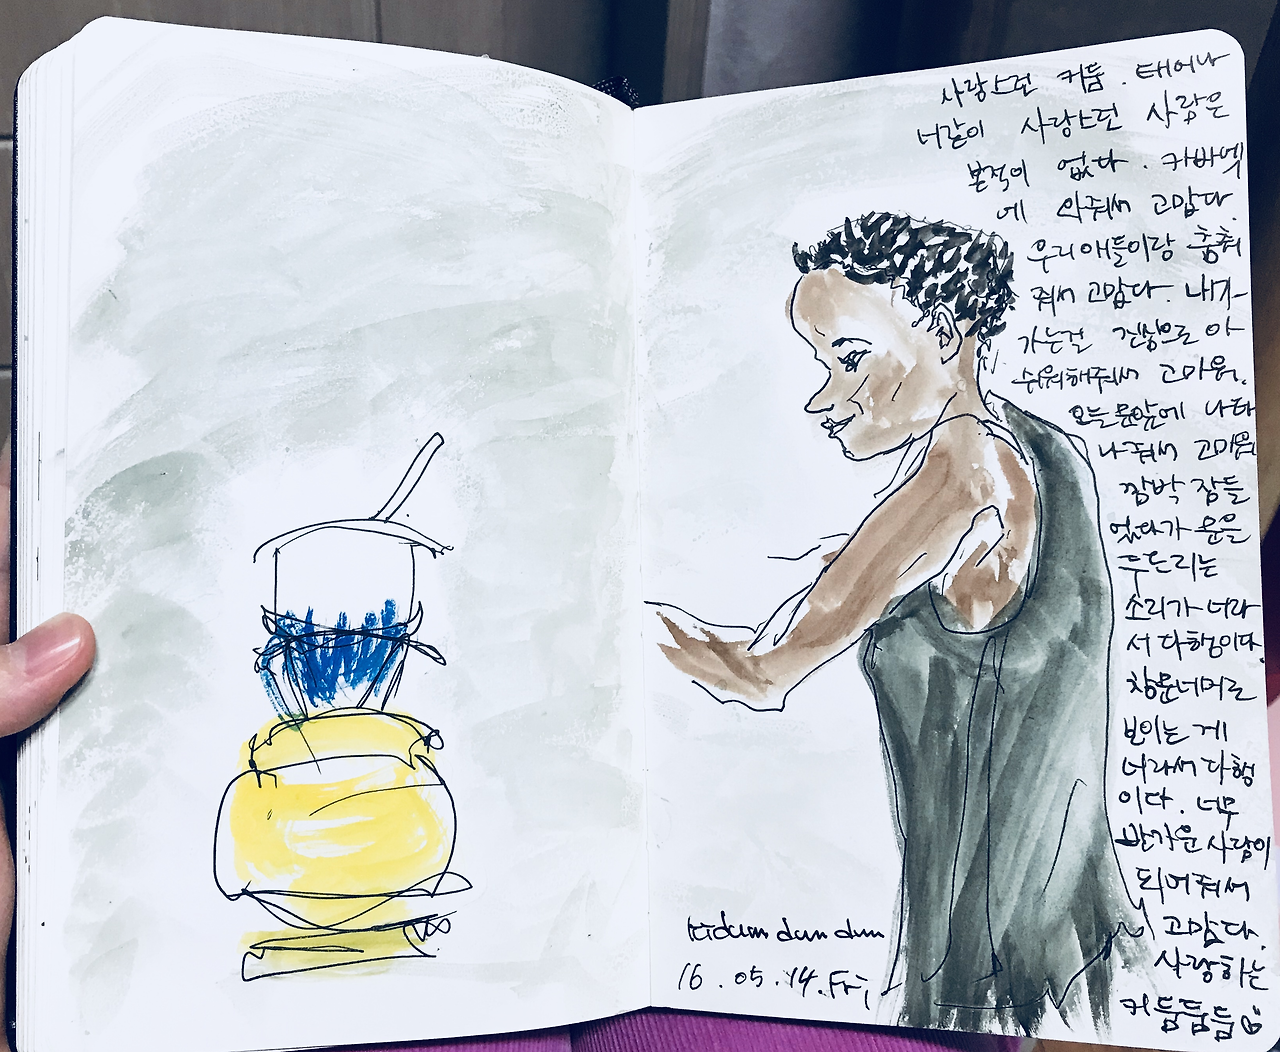 사랑스런 커듐. 태어나
너같이 사랑스런 사람은
본적이 없다. 카바렉
에 와줘서 고맙다.
우리애들이랑 춤춰
줘서 고맙다. 내가
가는걸 진심으로 아
쉬워해줘서 고마워.
오늘 문앞에 나타
나줘서 고마워
깜박 잠들
었다가 문을
두드리는
소리가 너라
서 다행이다.
창문너머로
보이는 게
너라서 다행
이다. 너무
반가운 사람이
되어줘서
고맙다.
사랑하는
커듐듐듐
kidum dum dum
16.05.14.Fri,